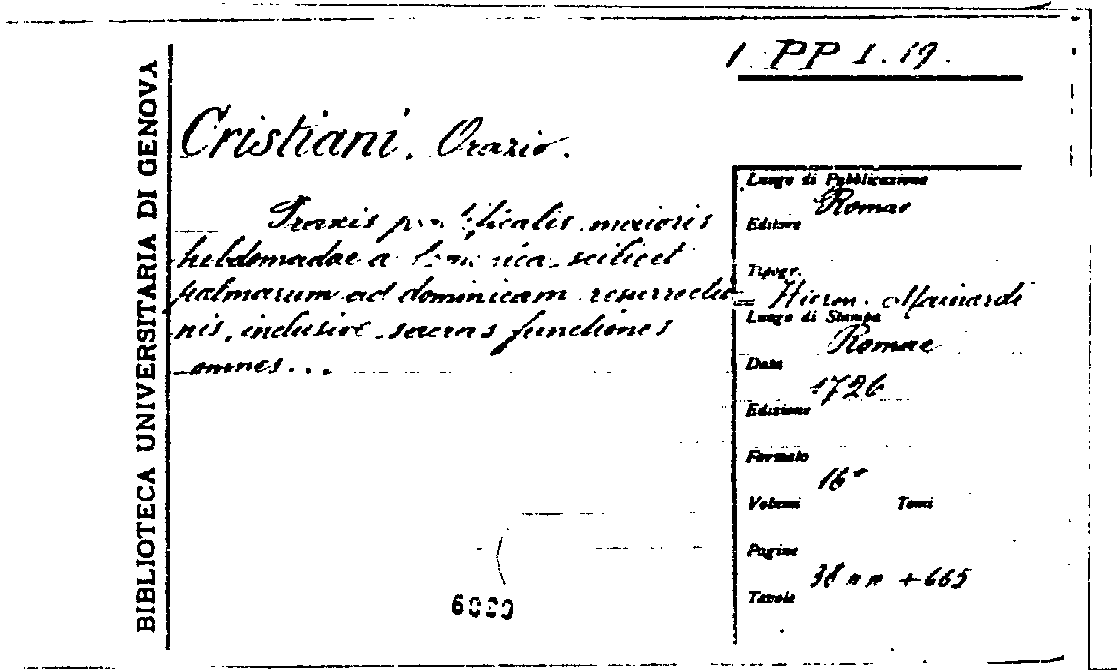 1. PP 1.19.
BIBLIOTECA UNIVERSITARIA DI GENOVA
Cristiani. Orazio.
Praxis pontificalis maioris
hebdomadae a dominica scilicet
palmarum ad dominicam resurrectio=
nis, inclusive sacras functiones
omnes...
Luogo di Pubblicazione
Romae
Editore
Tipogr.
Hieron. Mainardi
Luogo di Stampa
Romae
Data
1726
Edizione
Formato
16°
Volumi Tomi
Pagine
38 nn + 665
Tavole